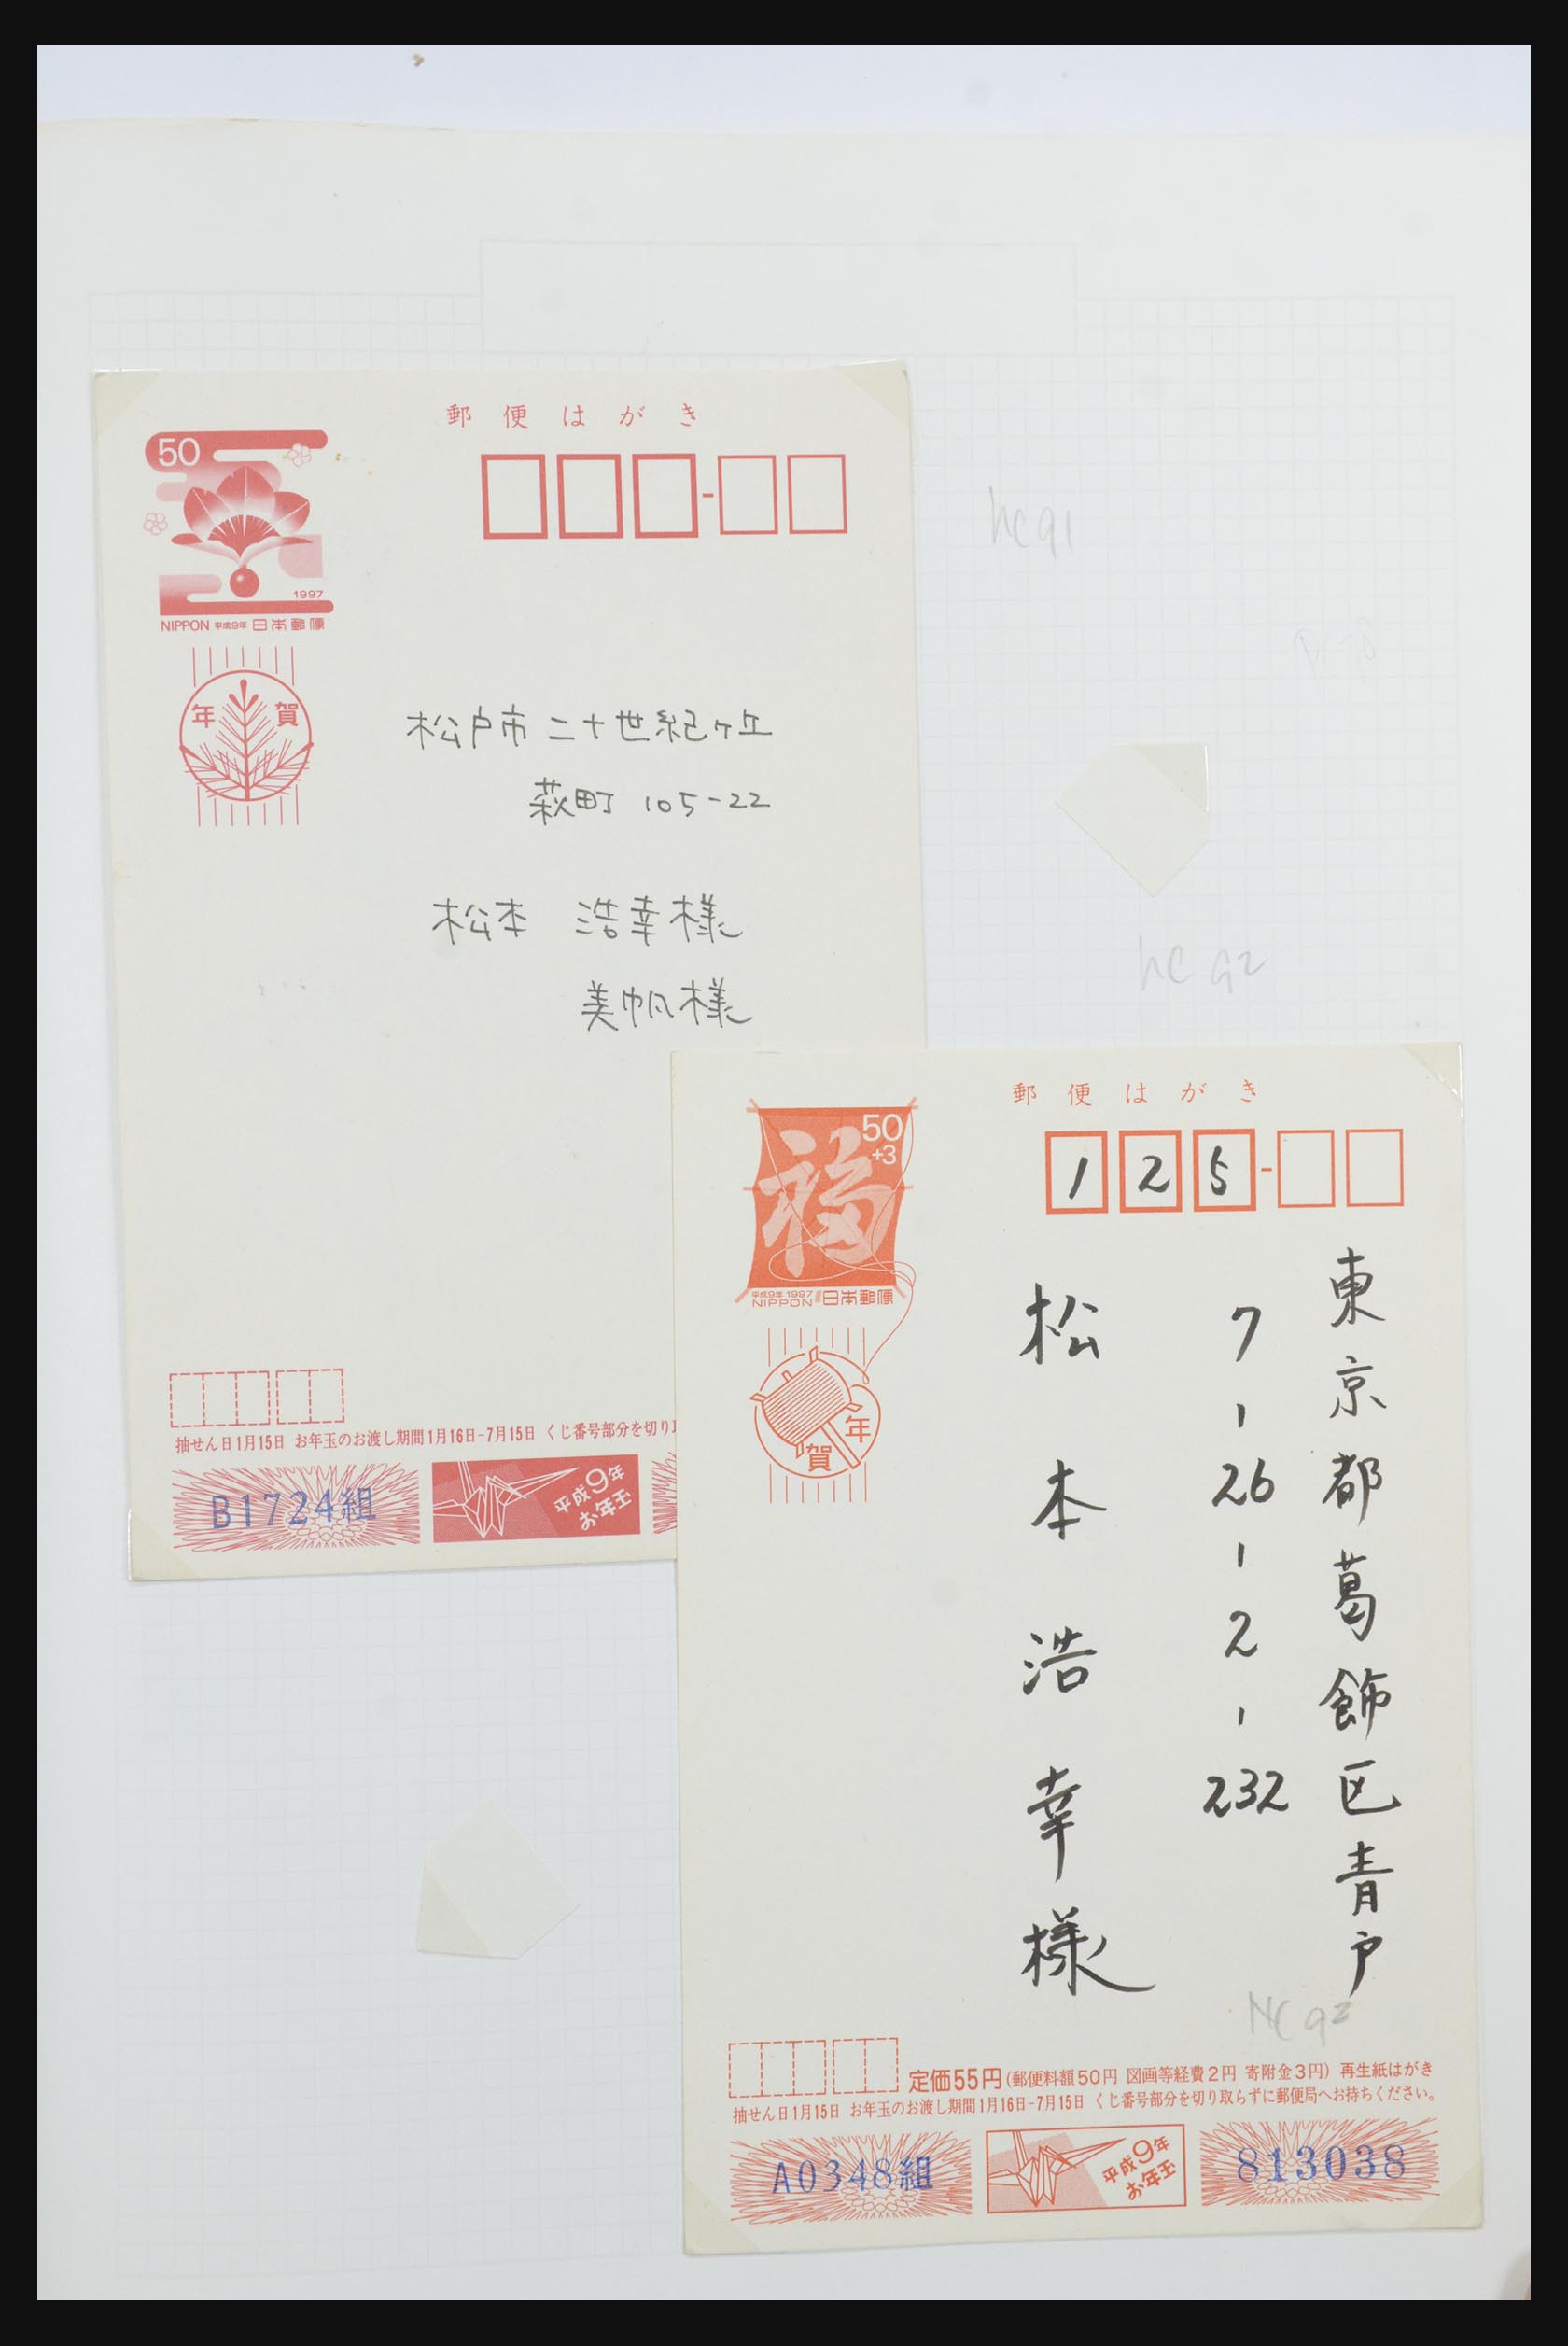 郵便はがき
50
1997
NIPPON 平成9年 日本郵便
年賀
松戸市二十世紀ヶ丘
萩町 105-22
松本 浩幸様
美帆様
抽せん日1月15日 お年玉のお渡し期間1月16日-7月15日 くじ番号部分を切り
B1724組
平成9年
お年玉
hc91
hc 92
郵便はがき
50
+3
福
平成9年 1997
NIPPON 日本郵便
年賀
125
東京都葛飾区青戸
7-26-2-232
松本浩幸様
NC 92
定価55円(郵便料額50円 図画等経費2円 寄附金3円) 再生紙はがき
抽せん日1月15日 お年玉のお渡し期間1月16日-7月15日 くじ番号部分を切り取らずに郵便局へお持ちください。
A0348組
平成9年
お年玉
813038